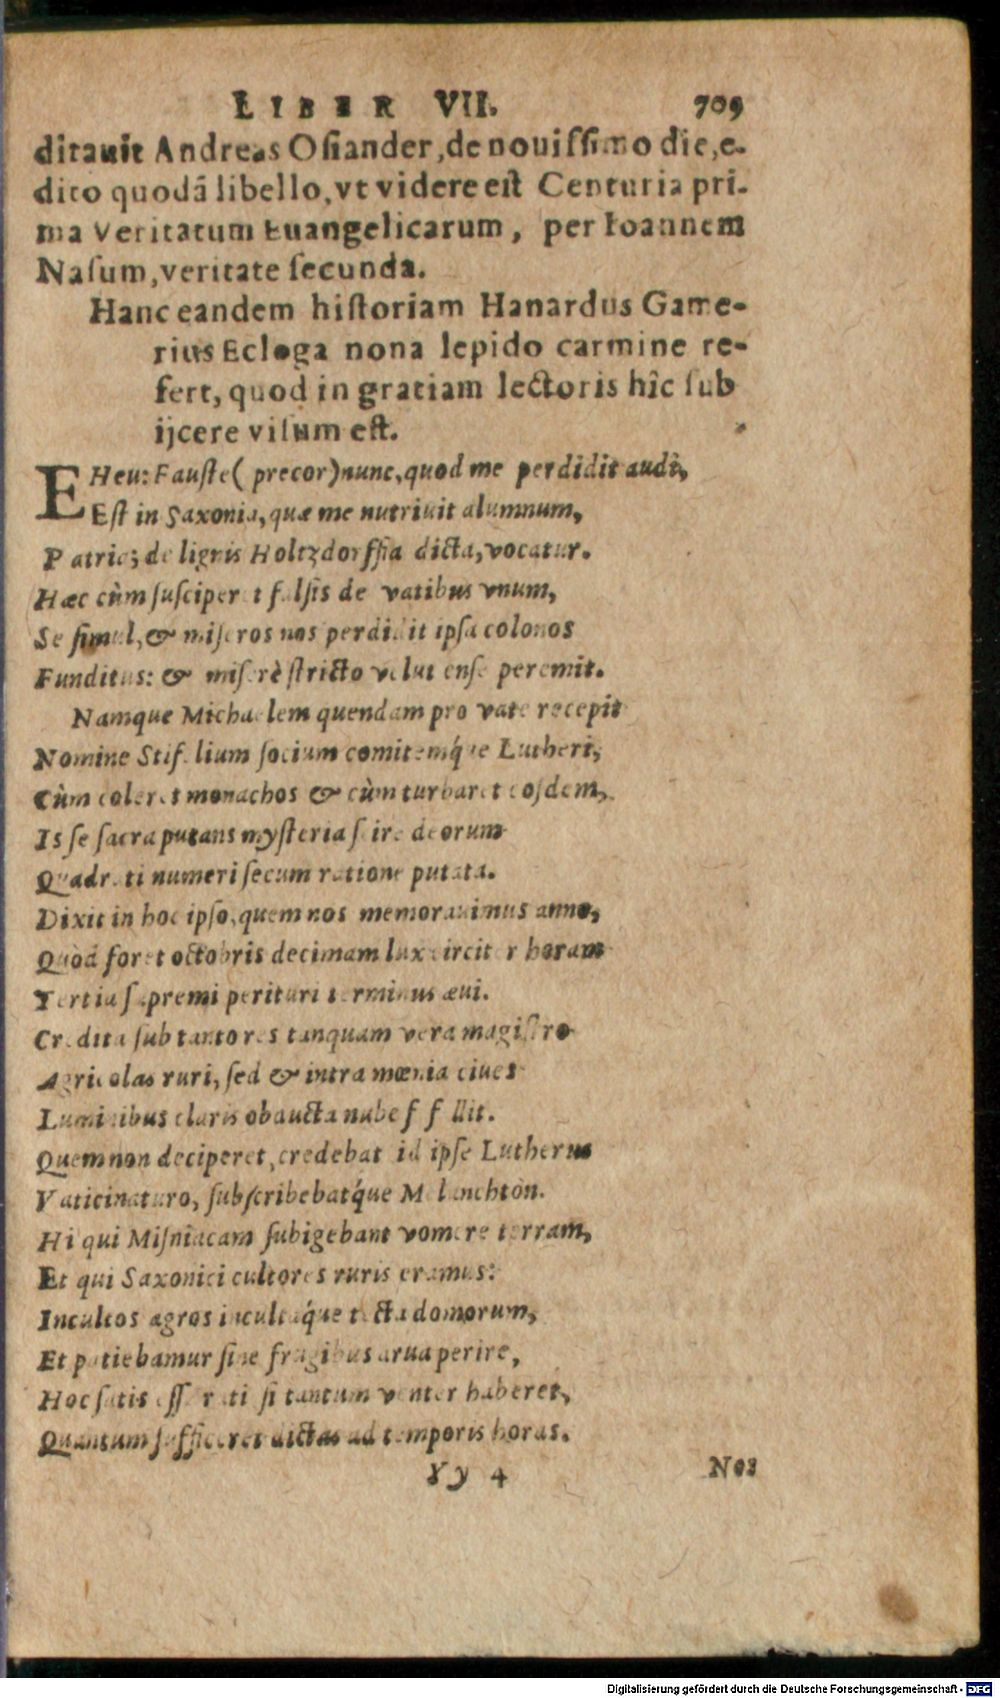 LIBER VII. 709
ditauit Andreas Osiander, de nouissimo die, e-
dito quodã libello, vt videre est Centuria pri-
ma Veritatum Euangelicarum, per Ioannem
Nasum, veritate secunda.
Hanc eandem historiam Hanardus Game-
rius Ecloga nona lepido carmine re-
fert, quod in gratiam lectoris hîc sub
ijcere visum est.
EHeu: Fauste (precor) nunc, quod me perdidit audi,
Est in Saxonia, quæ me nutriuit alumnum,
Patria; de lignis Holtzdorffia dicta, vocatur.
Hæc cùm susciperet falsis de vatibus vnum,
Se simul, & miseros nos perdidit ipsa colonos
Funditus: & miserè stricto velut ense peremit.
Namque Michaelem quendam pro vate recepit
Nomine Stifelium socium comitemq́ue Lutheri,
Cùm coleret monachos & cùm turbaret eosdem,
Is se sacra putans mysteria scire deorum
Quadrati numeri secum ratione putata.
Dixit in hoc ipso, quem nos memorauimus anno,
Quòd foret octobris decimam lux circiter horam
Tertia supremi perituri terminus æui.
Credita sub tanto res tanquam vera magistro
Agricolas ruri, sed & intra mœnia ciues
Luminibus claris obaucta nube fefellit.
Quem non deciperet, credebat id ipse Lutherus
Vaticinaturo, subscribebatq́ue Melanchton.
Hi qui Misniacam subigebant vomere terram,
Et qui Saxonici cultores ruris eramus:
Incultos agros incultaq́ue tecta domorum,
Et patiebamur sine frugibus arua perire,
Hoc satis esse rati si tantum venter haberet,
Quantum sufficeret dictas ad temporis horas.
Yy 4 Nos
Digitalisierung gefördert durch die Deutsche Forschungsgemeinschaft - DFG